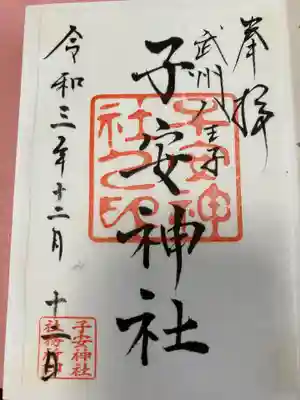 奉拝
武州八王子
子安神社
令和三年十二月十一日
子安神
社之印
子安神社
社務所印